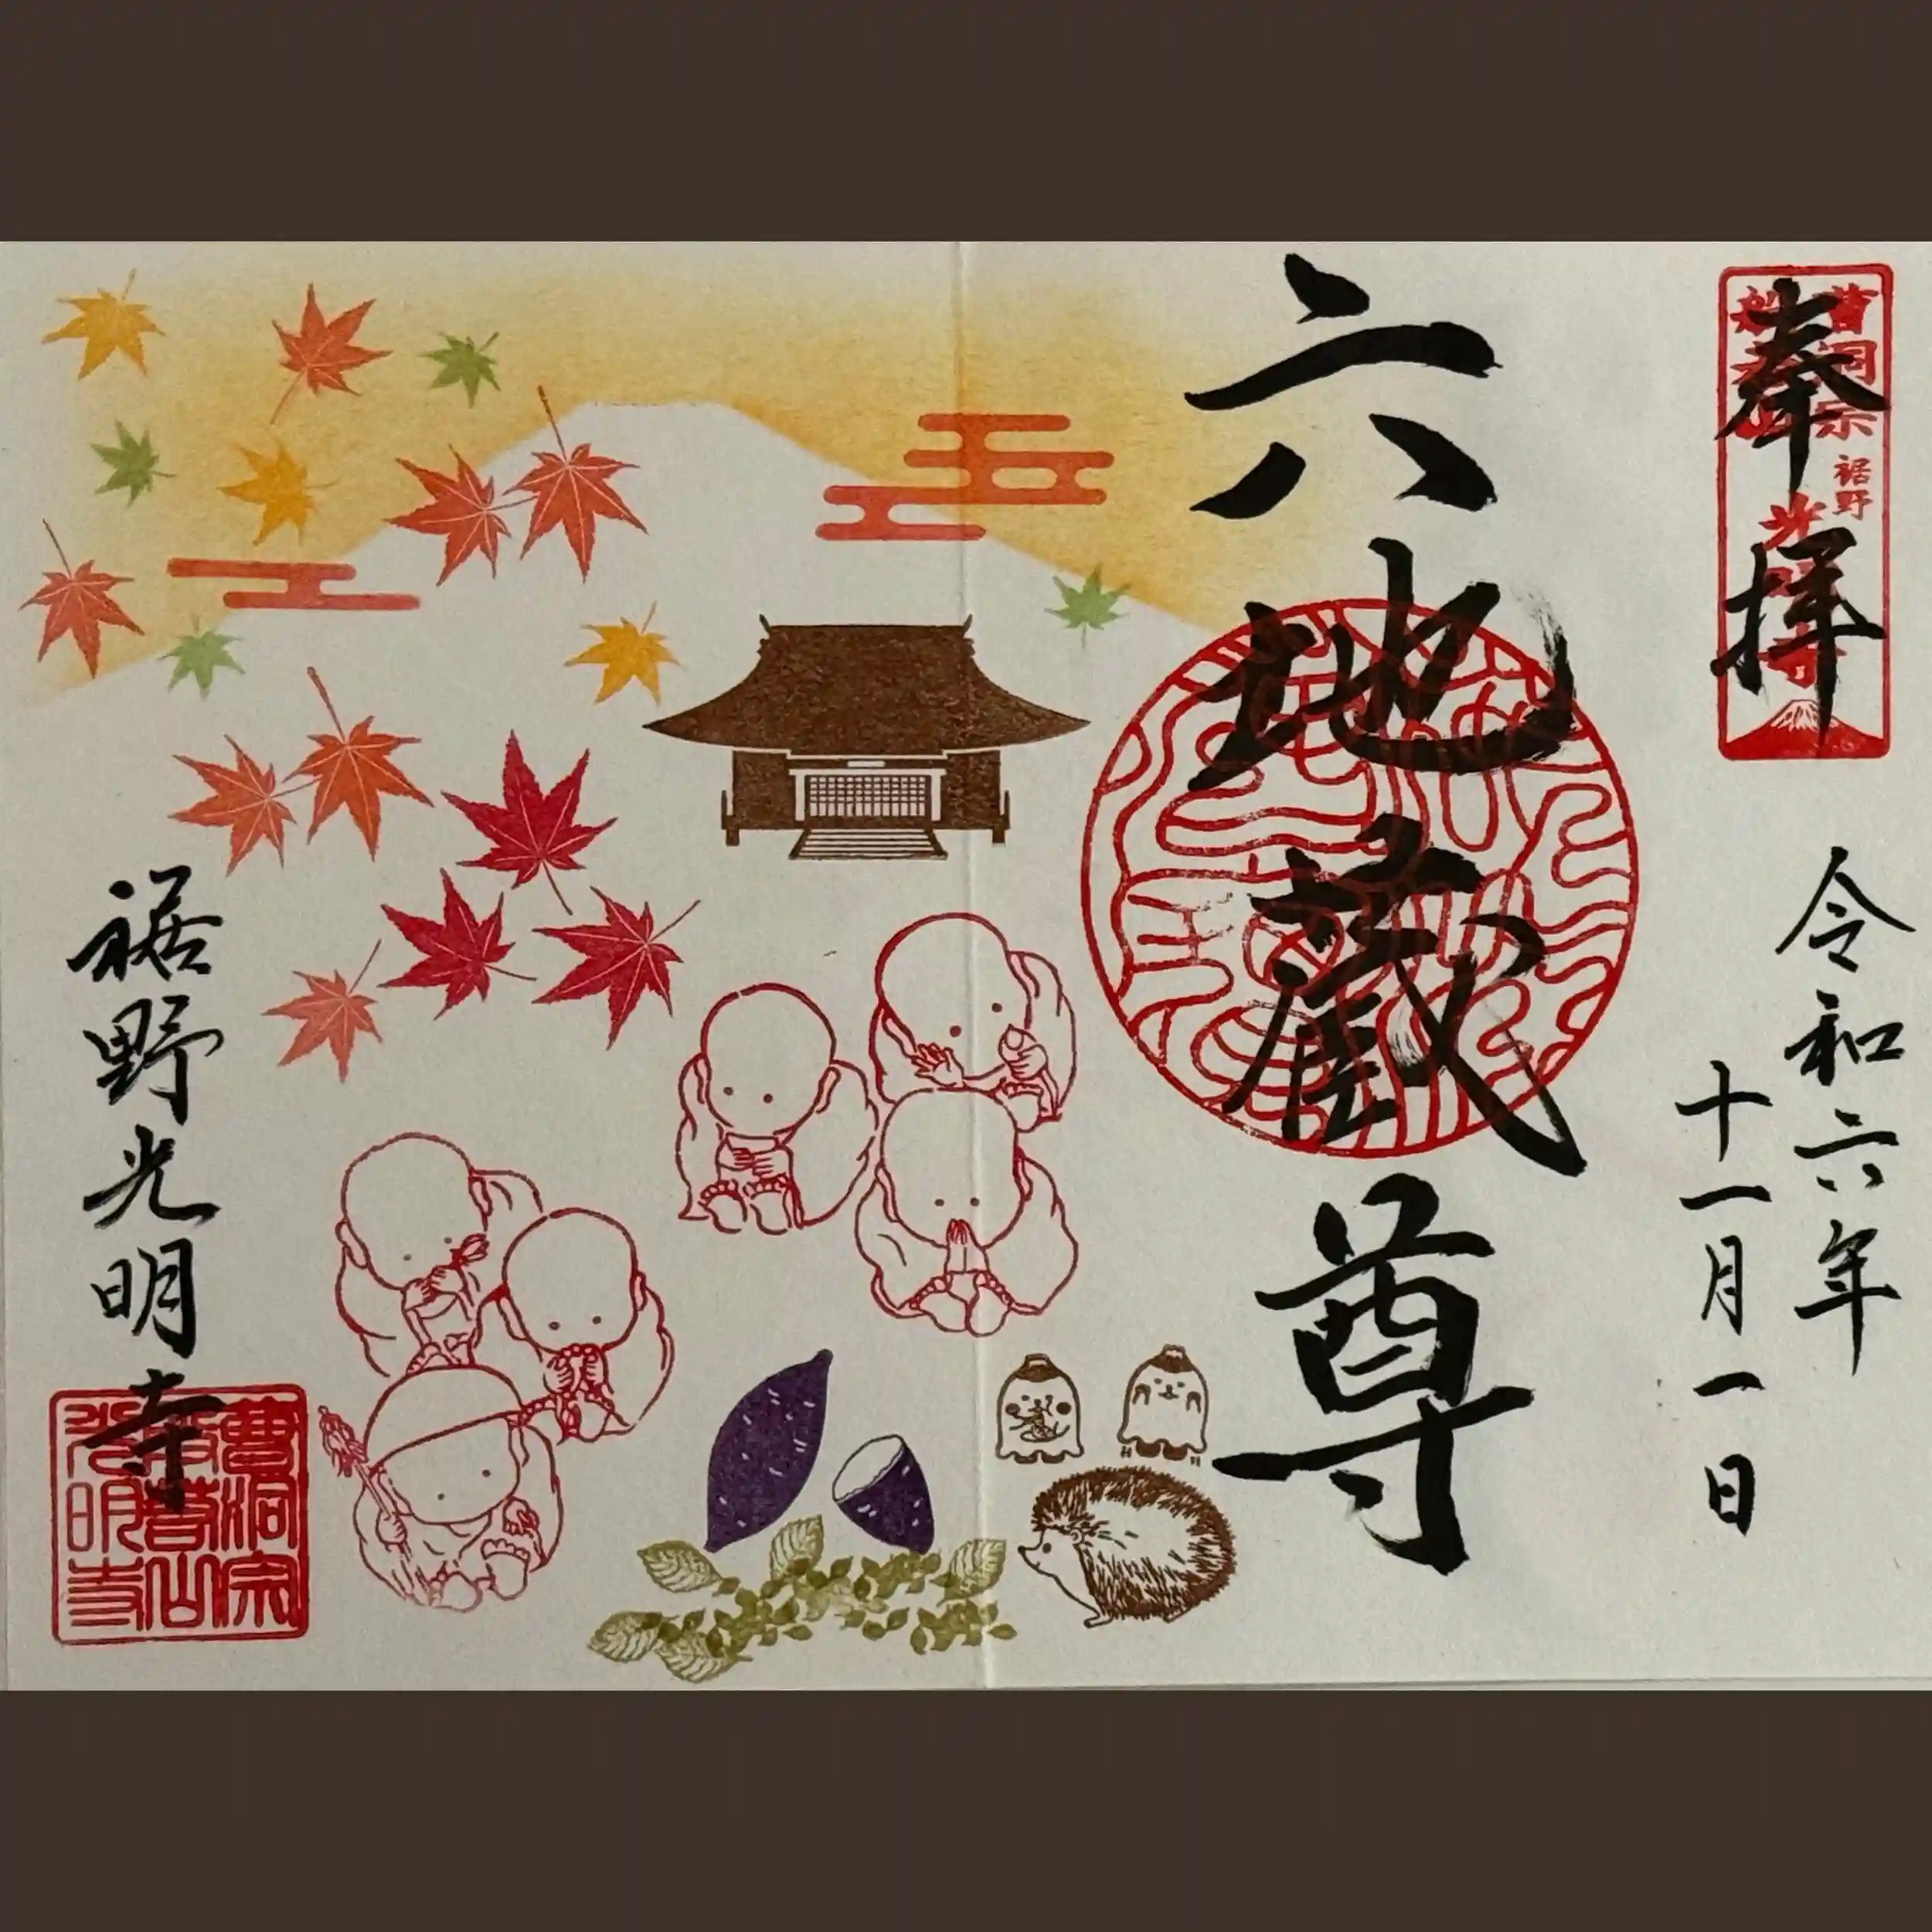 奉拝
曹洞宗
裾野
令和六年
十一月一日
六地蔵尊
裾野光明寺
曹洞宗
光明寺